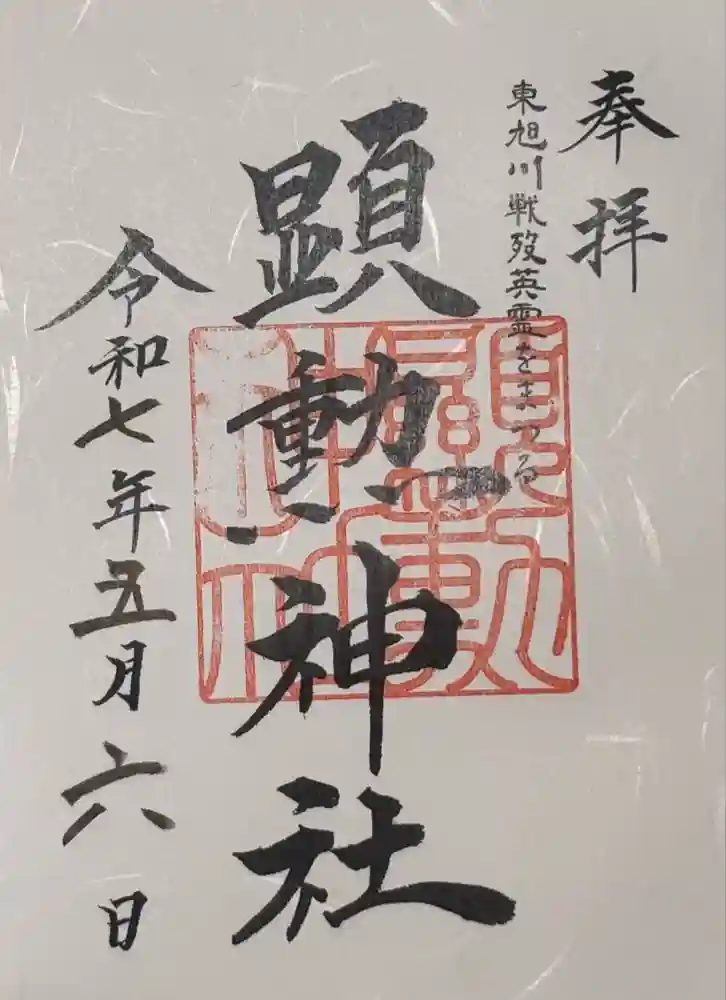 奉拝
東旭川戦歿英霊をまつる
顕勲神社
令和七年五月六日